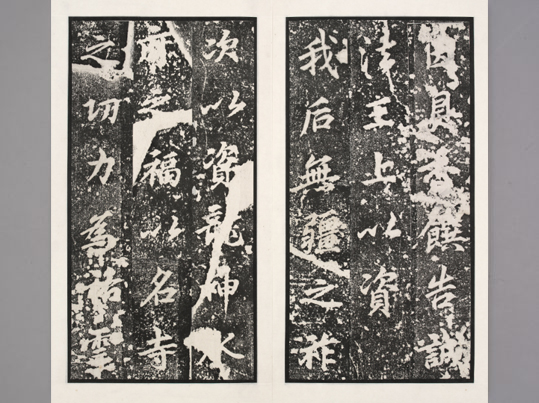 因具香饌告誠
法王上以資
我后無疆之祚
次以資龍神水
之福以名寺
之切力為